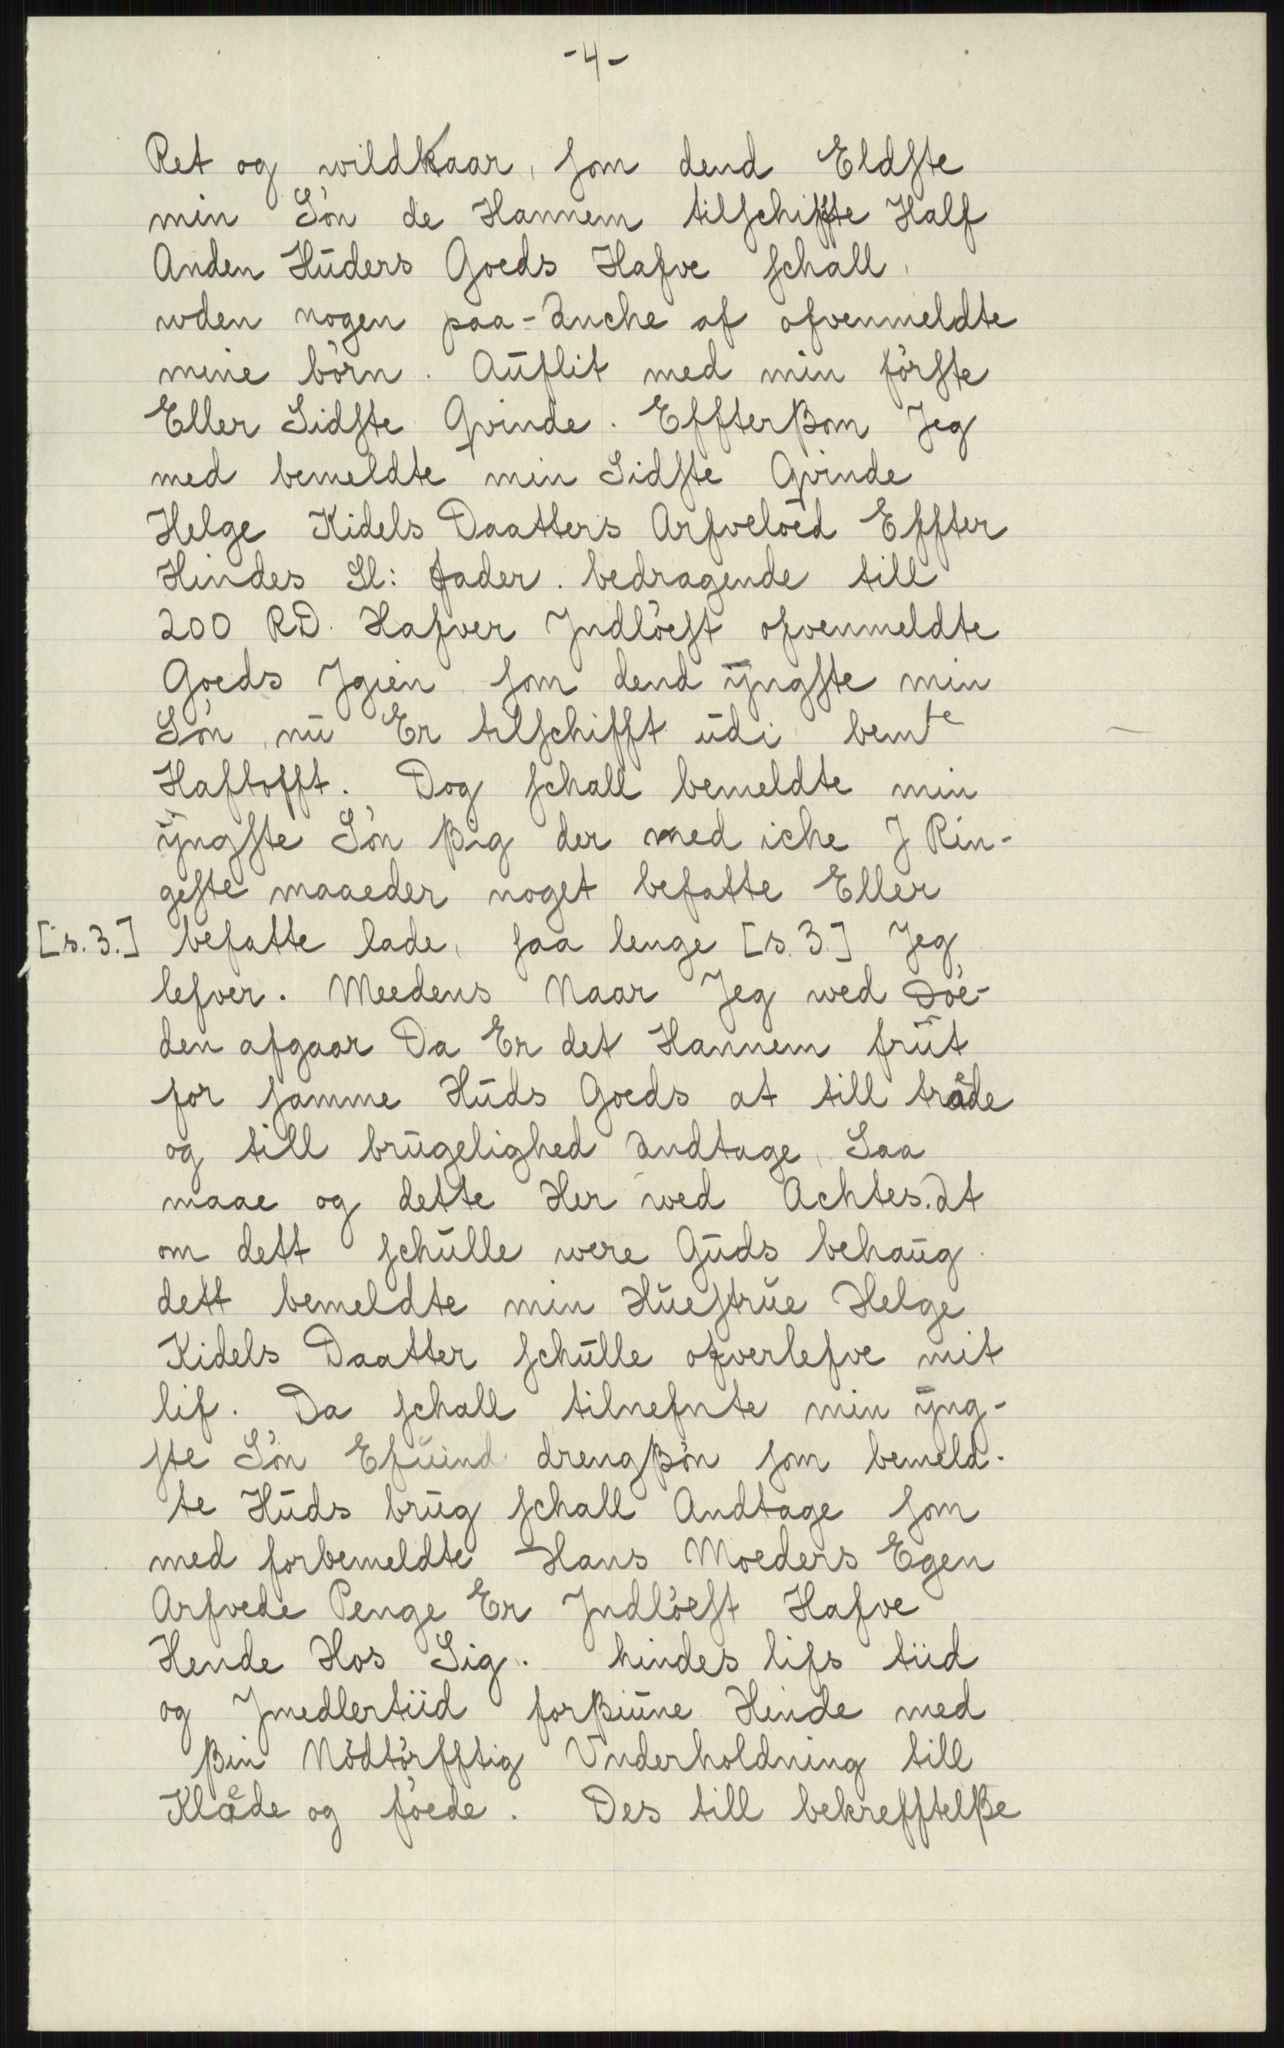 -4-
Ret og wildkaar, som dend Eldste
min Sön de Hannem tilschiffte Half
Anden Hūders Goeds Hafve schall,
wden nogen paa-anche af ofvenmeldte
mine börn. Aūflit med min förste
Eller Sidste Qvinde. Effterßom Jeg
med bemeldte min Sidste Qvinde
Helge Kidels Daatters Arfveloed Effter
Hindes Sl: fader. bedragende till
200 RD. Hafver Jndlöest ofvenmeldte
Goeds Jgien som dend ÿngste min
Sön, nū Er tilschifft ūdi bemte
Haftofft. Dog schall bemeldte min
ÿngste Sön ßig der med iche J Rin-
geste maaeder noget befatte Eller
[s.3.] befatte lade, saa lenge [s.3.] Jeg
lefver. Meedens Naar Jeg wed Döe-
den afgaar Da Er det Hannem friit
for samme Hūds Goeds at till tråde
og till brūgelighed andtage, Saa
maae og dette Her wed Achtes. at
om dett schūlle were Gūds behaug
dett bemeldte min Hūestrūe Helge
Kidels Daatter schūlle ofverlefve mit
lif. Da schall tilnefnte min ÿng-
ste Sön Efūind drengßön som bemeld-
te Hūds brūg schall Andtage som
med forbemeldte Hans Moeders Egen
Arfvede Penge Er Jndlöest Hafve
Hende Hos Sig. hindes lifs tiid
og Jmedlertiid forßiūne Hinde med
ßin Nödtörfftig Vnderholdning till
Klåde og föede. Des till bekrefftelße